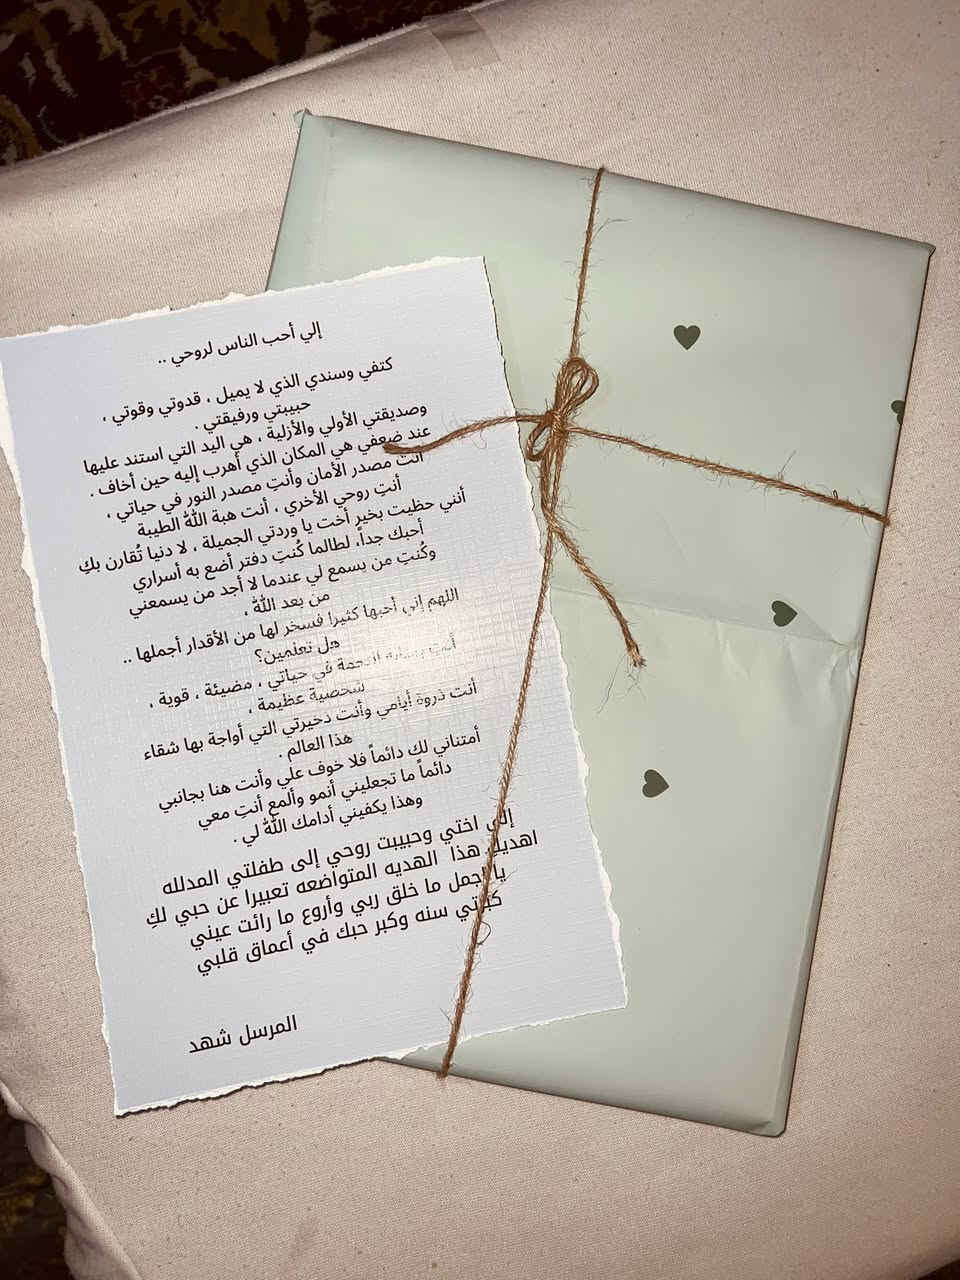 إلي أحب الناس لروحي ..
كتفي وسندي الذي لا يميل ، قدوتي وقوتي ،
حبيبتي ورفيقتي .
وصديقتي الأولي والأزلية ، هي اليد التي استند عليها
عند ضعفي هي المكان الذي أهرب إليه حين أخاف .
أنتَ مصدر الأمان وأنتِ مصدر النور في حياتي ،
أنتِ روحي الأخري ، أنت هبة اللّٰه الطيبة
أنني حظيت بخير أخت يا وردتي الجميلة ، لا دنيا تُقارن بكِ
أحبك جداً، لطالما كُنتِ دفتر أضع به أسراري
وكُنتِ من يسمع لي عندما لا أجد من يسمعني
من بعد اللّٰه ،
اللهم إني أحبها كثيرا فسخر لها من الأقدار أجملها ..
هل تعلمين؟
أنتِ النجمة في حياتي ، مضيئة ، قوية ،
شخصية عظيمة ،
أنت ذروة أيامي وأنت ذخيرتي التي أواجة بها شقاء
هذا العالم .
أمتناني لك دائماً فلا خوف علي وأنت هنا بجانبي
دائماً ما تجعليني أنمو وألمع أنتِ معي
وهذا يكفيني أدامك اللّٰه لي .
إلى اختي وحبيبت روحي إلى طفلتي المدلله
اهديك هذا الهديه المتواضعه تعبيرا عن حبي لكِ
يا اجمل ما خلق ربي وأروع ما رائت عيني
كبرتي سنه وكبر حبك في أعماق قلبي
المرسل شهد